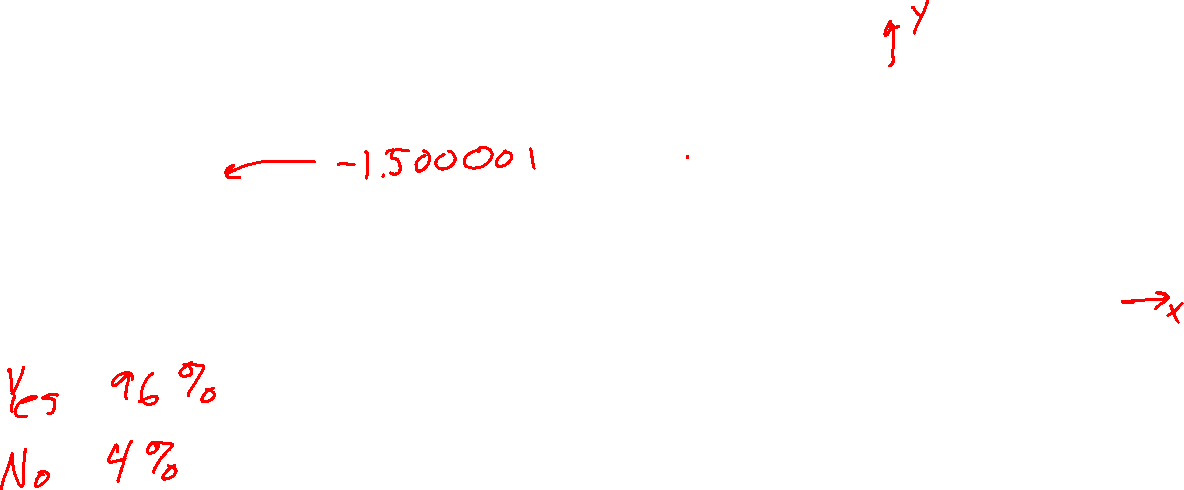 y
-1.500001
x
Yes 96%
No 4%